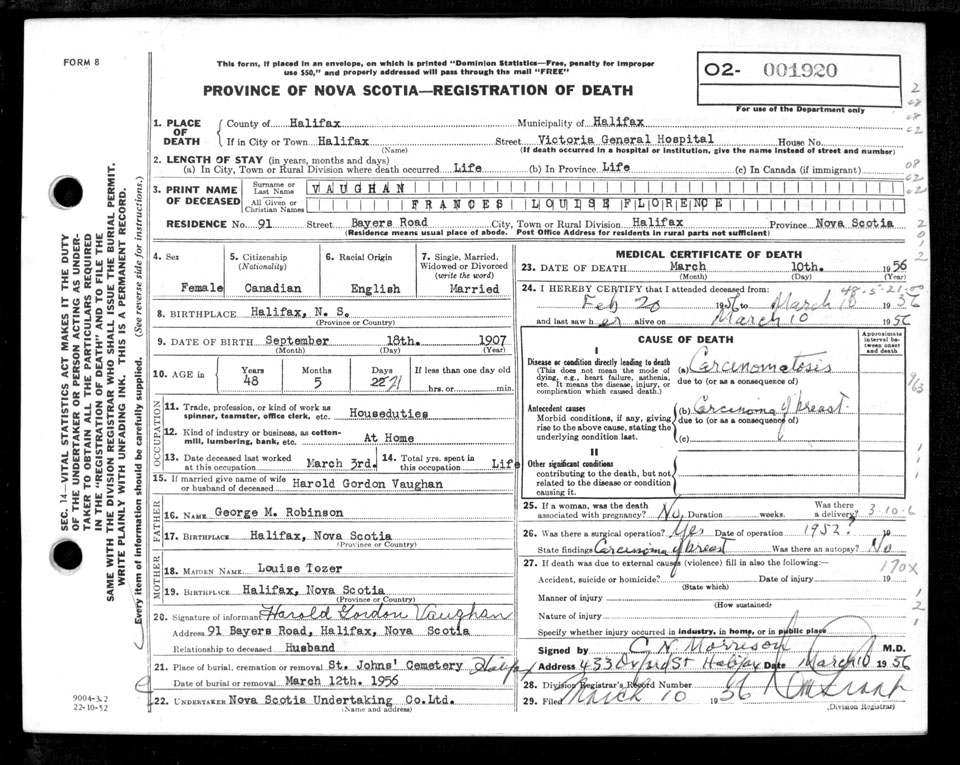 FORM 8
This form, if placed in an envelope, on which is printed "Dominion Statistics—Free, penalty for improper
use $50," and properly addressed will pass through the mail "FREE"
PROVINCE OF NOVA SCOTIA—REGISTRATION OF DEATH
O2- 001920
For use of the Department only
1. PLACE OF DEATH
County of Halifax Municipality of Halifax
If in City or Town Halifax Street Victoria General Hospital House No.
(Name) (If death occurred in a hospital or institution, give the name instead of street and number)
2. LENGTH OF STAY (in years, months and days)
(a) In City, Town or Rural Division where death occurred Life (b) In Province Life (c) In Canada (if immigrant)
3. PRINT NAME OF DECEASED
Surname or Last Name VAUGHAN
All Given or Christian Names FRANCES LOUISE FLORENCE
RESIDENCE No. 91 Street Bayers Road City, Town or Rural Division Halifax Province Nova Scotia
(Residence means usual place of abode. Post Office Address for residents in rural parts not sufficient)
4. Sex
Female
5. Citizenship
(Nationality)
Canadian
6. Racial Origin
English
7. Single, Married, Widowed or Divorced
(write the word)
Married
8. BIRTHPLACE Halifax, N. S.
(Province or Country)
9. DATE OF BIRTH September 18th. 1907
(Month) (Day) (Year)
10. AGE in Years Months Days If less than one day old
48 5 22 21 hrs. or min.
OCCUPATION
11. Trade, profession, or kind of work as
spinner, teamster, office clerk, etc. Houseduties
12. Kind of industry or business, as cotton-
mill, lumbering, bank, etc. At Home
13. Date deceased last worked
at this occupation March 3rd.
14. Total yrs. spent in
this occupation Life
15. If married give name of wife
or husband of deceased Harold Gordon Vaughan
FATHER
16. NAME George M. Robinson
17. BIRTHPLACE Halifax, Nova Scotia
(Province or Country)
MOTHER
18. MAIDEN NAME Louise Tozer
19. BIRTHPLACE Halifax, Nova Scotia
(Province or Country)
20. Signature of informant Harold Gordon Vaughan
Address 91 Bayers Road, Halifax, Nova Scotia
Relationship to deceased Husband
21. Place of burial, cremation or removal St. Johns' Cemetery Halifax
Date of burial or removal March 12th. 1956
22. UNDERTAKER Nova Scotia Undertaking Co.Ltd.
(Name and address)
MEDICAL CERTIFICATE OF DEATH
23. DATE OF DEATH March 10th. 1956
(Month) (Day) (Year)
24. I HEREBY CERTIFY that I attended deceased from: 48-5-21-00
Feb 20 1956 to March 10 1956
and last saw her alive on March 10 1956
CAUSE OF DEATH
Approximate interval between onset and death
I
Disease or condition directly leading to death
(This does not mean the mode of
dying, e.g., heart failure, asthenia,
etc. It means the disease, injury, or
complication which caused death.)
(a) Carcinomatosis
due to (or as a consequence of)
Antecedent causes
Morbid conditions, if any, giving
rise to the above cause, stating the
underlying condition last.
(b) Carcinoma of breast
due to (or as a consequence of)
(c)
II
Other significant conditions
contributing to the death, but not
related to the disease or condition
causing it.
25. If a woman, was the death
associated with pregnancy? No Duration weeks. Was there a delivery? 3-10-6
26. Was there a surgical operation? Yes Date of operation 1952? 19
State findings Carcinoma of breast Was there an autopsy? No
27. If death was due to external causes (violence) fill in also the following:— 170X
Accident, suicide or homicide? Date of injury 19
(State which)
Manner of injury
(How sustained)
Nature of injury
Specify whether injury occurred in industry, in home, or in public place
Signed by C N Morrison M.D.
Address 433 Oxford St Halifax Date March 10 1956
28. Division Registrar's Record Number
29. Filed March 10 1956
(Division Registrar)
SEC. 14—VITAL STATISTICS ACT MAKES IT THE DUTY
OF THE UNDERTAKER OR PERSON ACTING AS UNDER-
TAKER TO OBTAIN ALL THE PARTICULARS REQUIRED
IN THE "REGISTRATION OF DEATH" AND TO FILE THE
SAME WITH THE DIVISION REGISTRAR WHO SHALL ISSUE THE BURIAL PERMIT.
WRITE PLAINLY WITH UNFADING INK. THIS IS A PERMANENT RECORD.
Every item of information should be carefully supplied. (See reverse side for instructions.)
9004-3.2
22-10-52